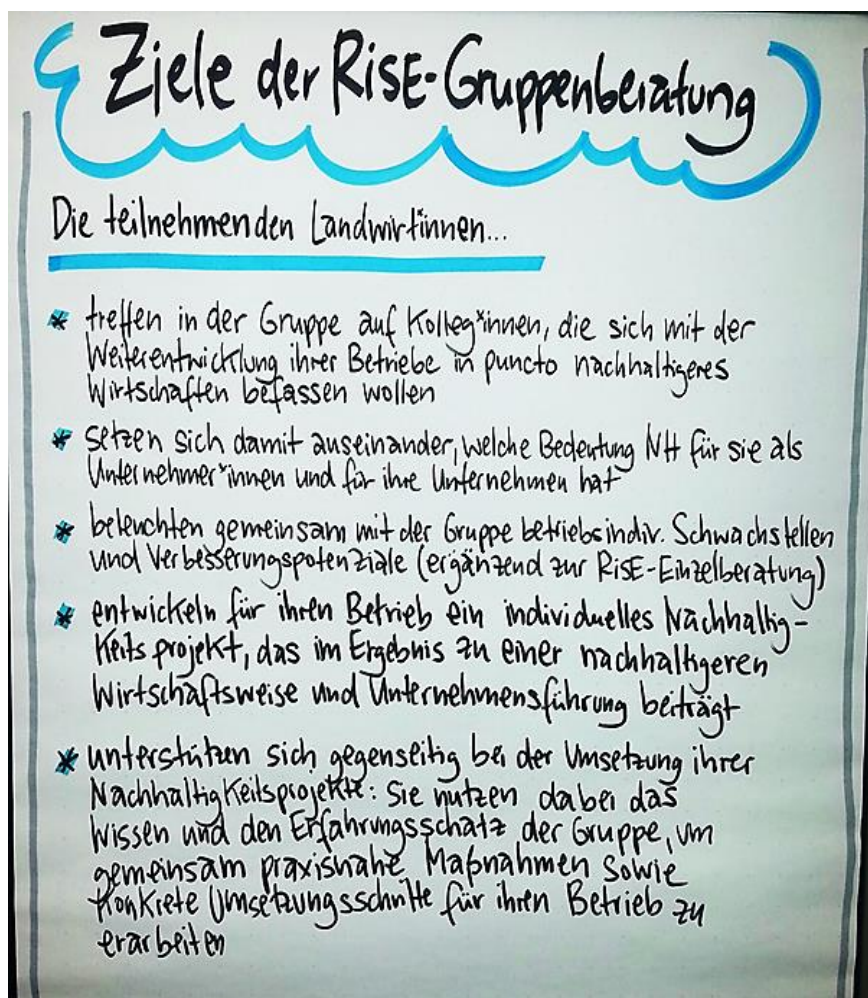 Ziele der RISE-Gruppenberatung
Die teilnehmenden Landwirtinnen...
* treffen in der Gruppe auf Kolleg*innen, die sich mit der
Weiterentwicklung ihrer Betriebe in puncto nachhaltigeres
Wirtschaften befassen wollen
* setzen sich damit auseinander, welche Bedeutung NH für sie als
Unternehmer*innen und für ihre Unternehmen hat
* beleuchten gemeinsam mit der Gruppe betriebsindiv. Schwachstellen
und Verbesserungspotenziale (ergänzend zur RISE-Einzelberatung)
* entwickeln für ihren Betrieb ein individuelles Nachhaltig-
keitsprojekt, das im Ergebnis zu einer nachhaltigeren
Wirtschaftsweise und Unternehmensführung beiträgt
* unterstützen sich gegenseitig bei der Umsetzung ihrer
Nachhaltigkeitsprojekte: Sie nutzen dabei das
Wissen und den Erfahrungsschatz der Gruppe, um
gemeinsam praxisnahe Maßnahmen sowie
konkrete Umsetzungsschritte für ihren Betrieb zu
erarbeiten